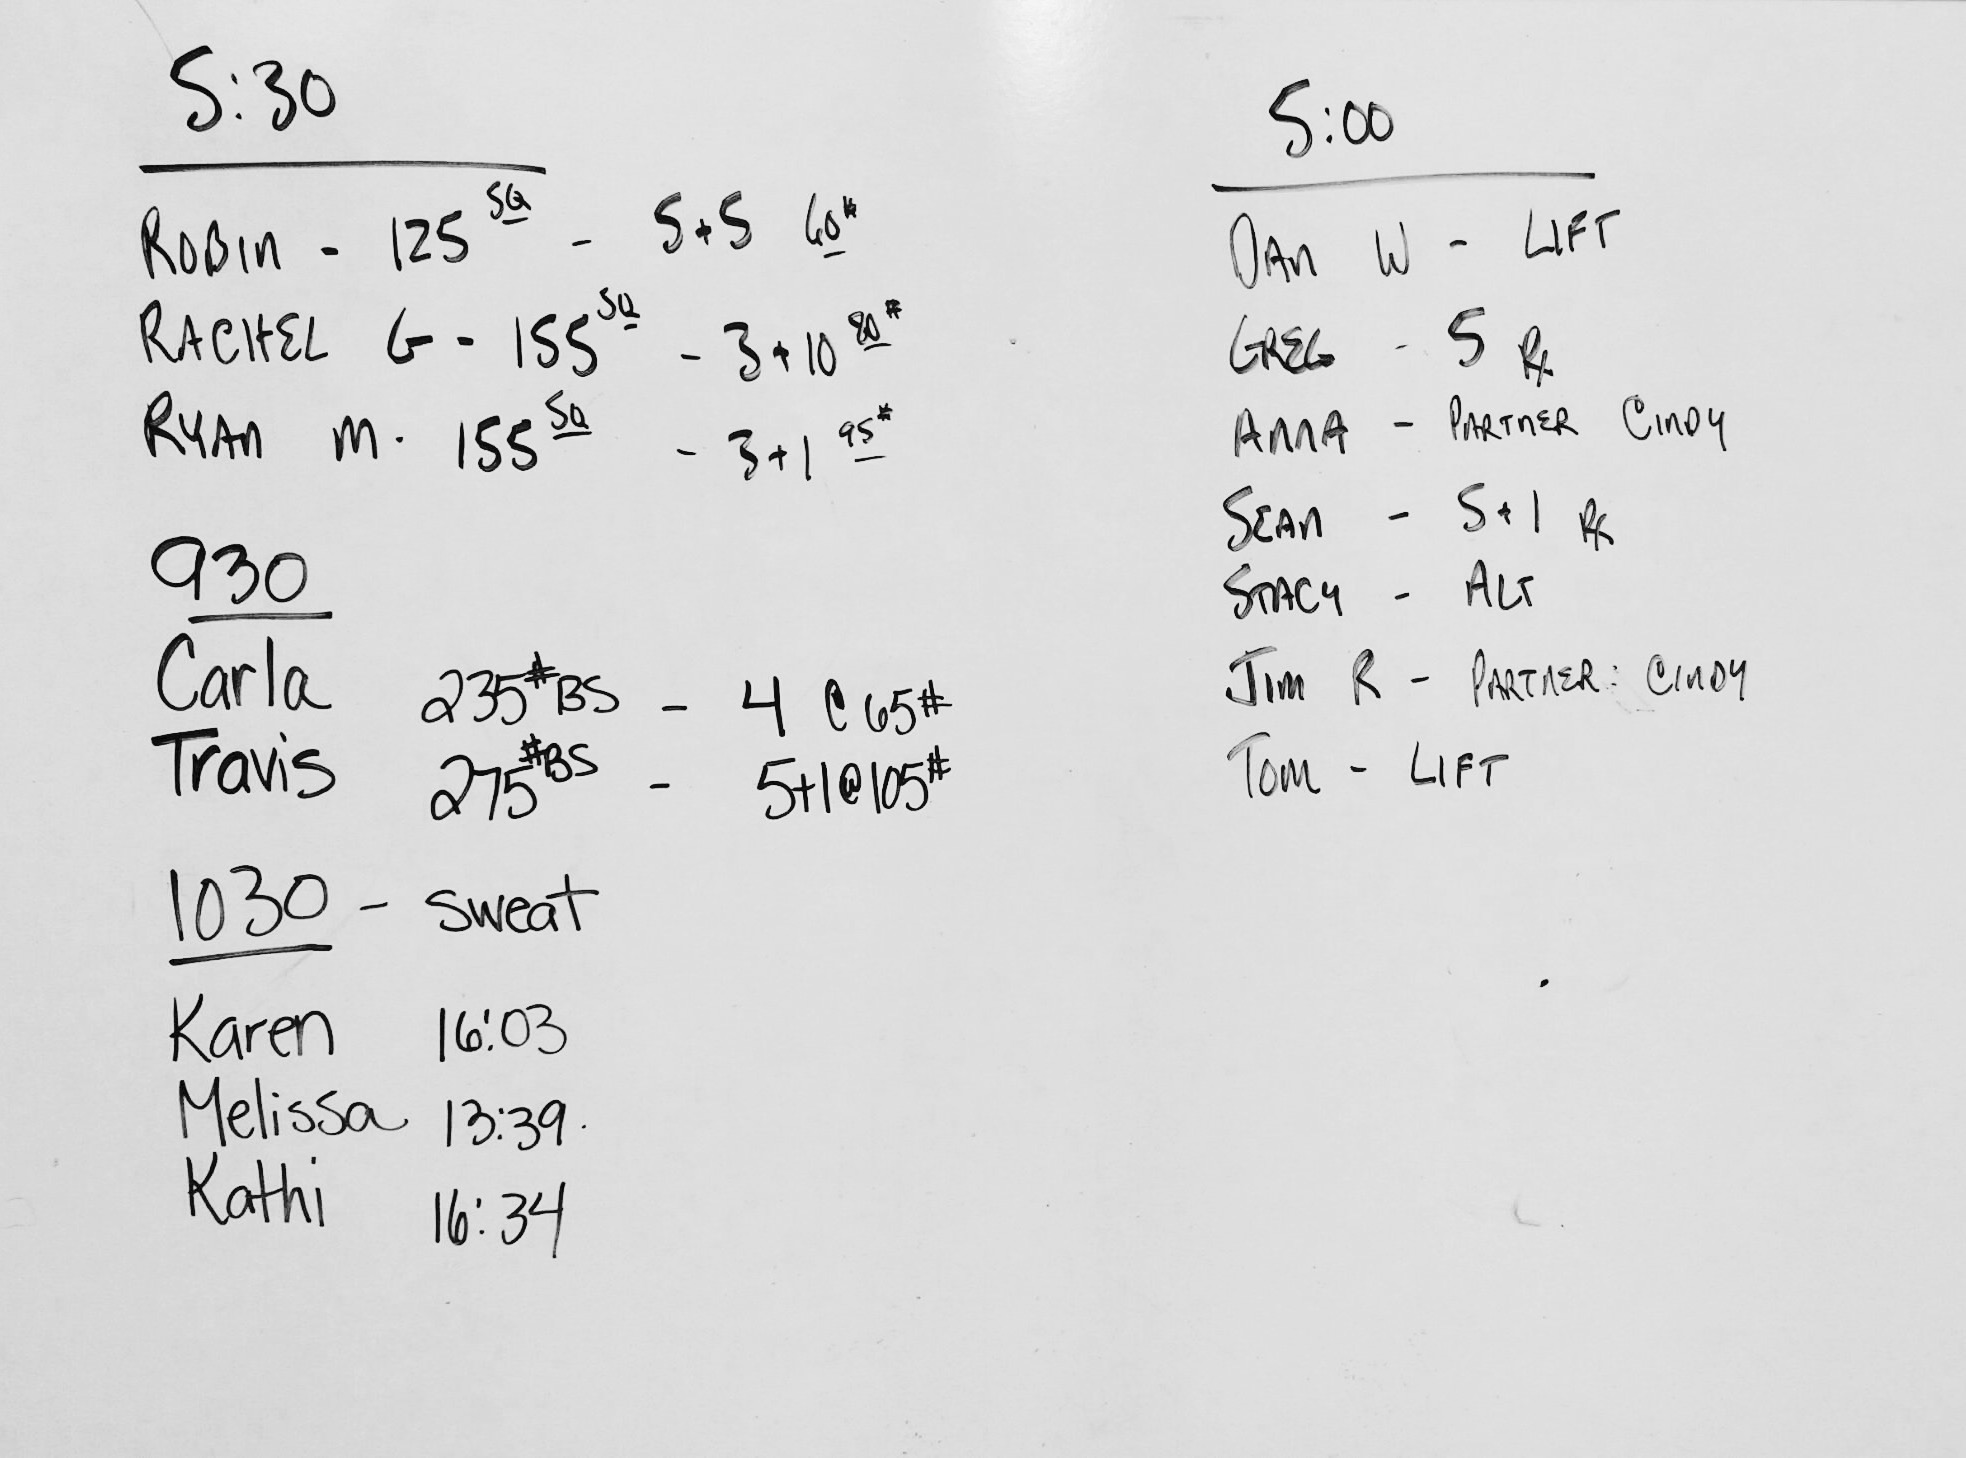 5:30
ROBIN - 125 SQ - 5+5 60#
RACHEL G - 155 SQ - 3+10 80#
RYAN M. 155 SQ - 3+1 95#
930
Carla 235# BS - 4 @ 65#
Travis 275# BS - 5+1 @ 105#
1030 - sweat
Karen 16:03
Melissa 13:39
Kathi 16:34
5:00
DAN W - LIFT
GREG - 5 Rx
ANNA - PARTNER CINDY
SEAN - 5+1 Rx
STACY - ALT
JIM R - PARTNER: CINDY
TOM - LIFT